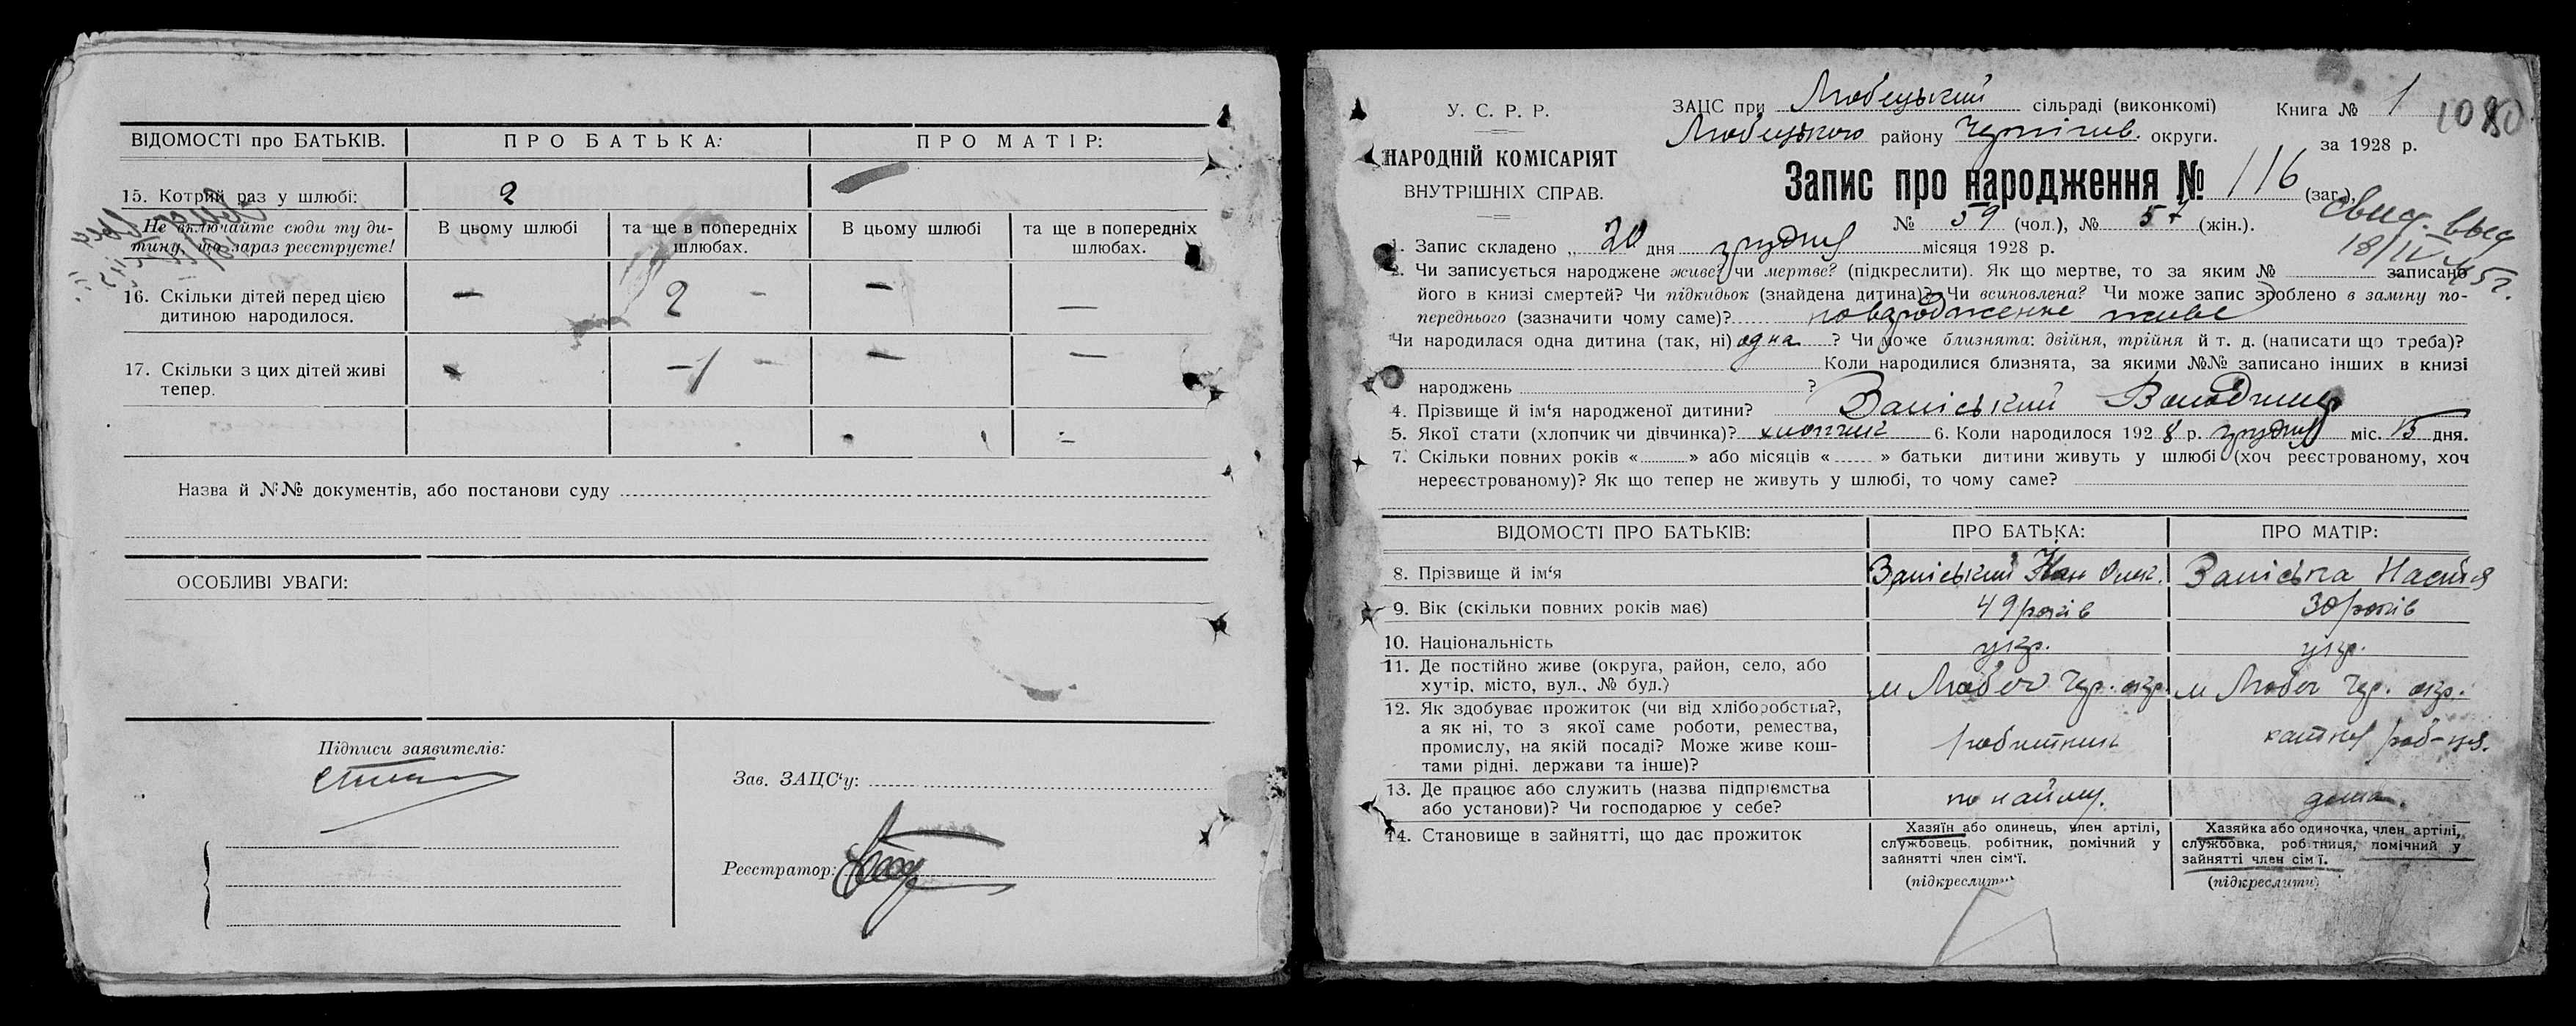 ВІДОМОСТІ про БАТЬКІВ.
ПРО БАТЬКА:
ПРО МАТІР:
15. Котрий раз у шлюбі:
2
Не включайте сюди ту ди-
тину, що зараз реєструєте!
В цьому шлюбі
та ще в попередніх
шлюбах.
В цьому шлюбі
та ще в попередніх
шлюбах.
16. Скільки дітей перед цією
дитиною народилося.
— 2 - — —
17. Скільки з цих дітей живі
тепер.
- -1 - — —
Назва й №№ документів, або постанови суду
ОСОБЛИВІ УВАГИ:
Підписи заявителів:
Зав. ЗАЦС‘у:
Реєстратор:
У. С. Р. Р.
НАРОДНІЙ КОМІСАРІЯТ
ВНУТРІШНІХ СПРАВ.
ЗАЦС при Любецький сільраді (виконкомі)
Любецького району Чернігив. округи.
Книга № 1
1080
за 1928 р.
Запис про народження № 116 (заг.),
№ 59 (чол.), № 57 (жін.).
свид. выд
18/IV 45г.
1. Запис складено „ 20 дня грудня місяця 1928 р.
2. Чи записується народжене живе? чи мертве? (підкреслити). Як що мертве, то за яким № записано
його в книзі смертей? Чи підкидьок (знайдена дитина)? Чи всиновлена? Чи може запис зроблено в заміну по-
переднього (зазначити чому саме)? новародженне живе
Чи народилася одна дитина (так, ні) одна ? Чи може близнята: двійня, трійня й т. д. (написати що треба)?
Коли народилися близнята, за якими №№ записано інших в книзі
народжень ?
4. Прізвище й ім‘я народженої дитини? Заліський Володимир
5. Якої стати (хлопчик чи дівчинка)? хлопчик 6. Коли народилося 1928 р. грудня міс. 15 дня.
7. Скільки повних років « » або місяців « » батьки дитини живуть у шлюбі (хоч реєстрованому, хоч
нереєстрованому)? Як що тепер не живуть у шлюбі, то чому саме?
ВІДОМОСТІ ПРО БАТЬКІВ:
ПРО БАТЬКА:
ПРО МАТІР:
8. Прізвище й ім‘я
Заліський Іван Олек.
Заліська Настя
9. Вік (скільки повних років має)
49 років
30 років
10. Національність
укр.
укр.
11. Де постійно живе (округа, район, село, або
хутір, місто, вул., № буд.)
м Любеч Чер. окр.
м Любеч Чер. окр.
12. Як здобуває прожиток (чи від хліборобства?,
а як ні, то з якої саме роботи, ремества,
промислу, на якій посаді? Може живе кош-
тами рідні, держави та інше)?
робитник
хатня роб-ця.
13. Де працює або служить (назва підприємства
або установи)? Чи господарює у себе?
по найму.
дома.
14. Становище в зайнятті, що дає прожиток
Хазяїн або одинець, член артілі,
службовець, робітник, помічний у
зайнятті член сім‘ї.
(підкреслити)
Хазяйка або одиночка, член артілі,
службовка, робітниця, помічний у
зайнятті член сім‘ї.
(підкреслити)